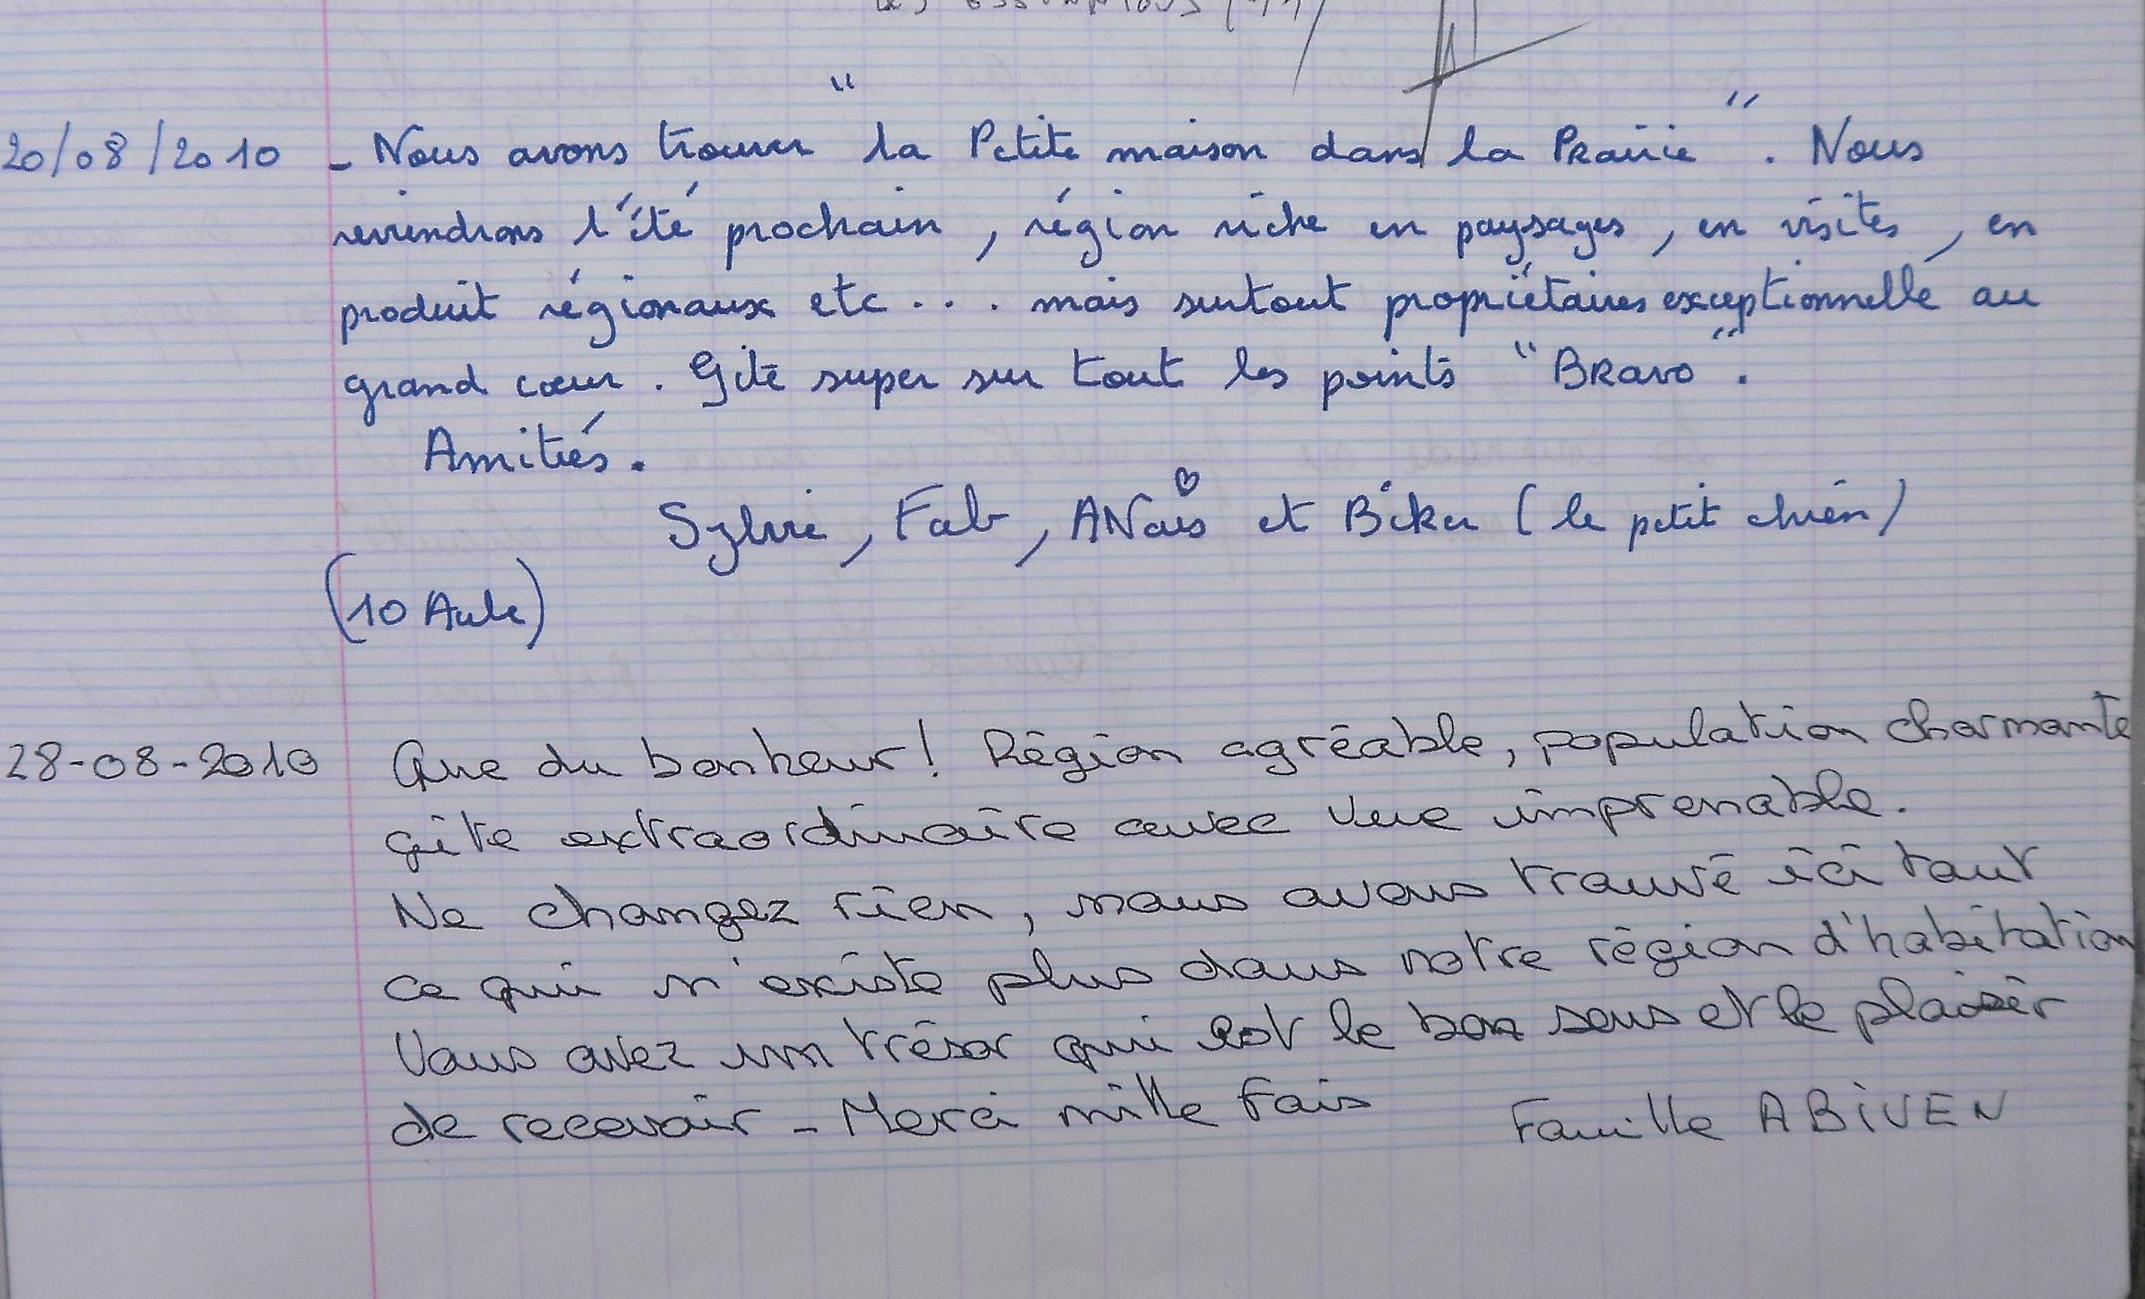 20/08/2010 - Nous avons trouver "la Petite maison dans la PRairie". Nous
reviendrons l'été prochain, région riche en paysages, en visites, en
produit régionaux etc... mais surtout propriétaires exceptionnelle au
grand cœur. Gite super sur tout les points "BRavo".
Amitiés.
Sylvie, Fab, ANaïs et Biker (le petit chien)
(10 Aube)
28-08-2010 Que du bonheur! Région agréable, population charmante
gîte extraordinaire avec vue imprenable.
Ne changez rien, nous avons trouvé ici tout
ce qui n'existe plus dans notre région d'habitation
Vous avez un trésor qui est le bon sens et le plaisir
de recevoir - Merci mille fois Famille ABIVEN